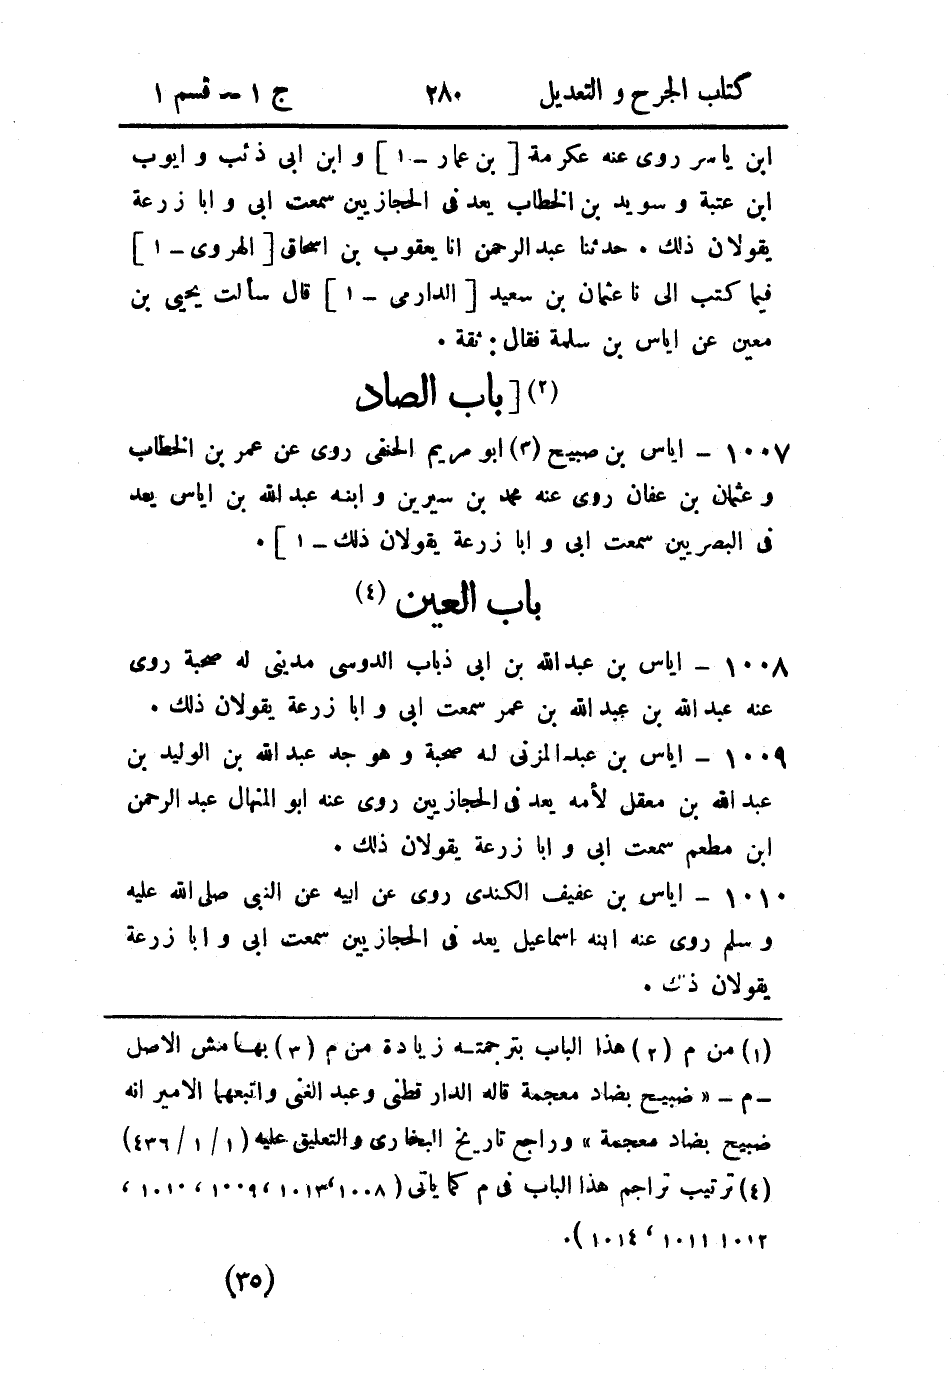 كتاب الجرح و التعديل ٢٨٠ ج ١ – قسم ١
ابن ياسر روى عنه عكرمة [ بن عمار – ١ ] و ابن ابى ذئب و ايوب
ابن عتبة و سويد بن الخطاب يعد فى الحجازيين سمعت ابى و ابا زرعة
يقولان ذلك . حدثنا عبد الرحمن انا يعقوب بن اسحاق [ الهروى – ١ ]
فيما كتب الى نا عثمان بن سعيد [ الدارمى – ١ ] قال سألت يحيى بن
معين عن اياس بن سلمة فقال : ثقة .
(٢) [ باب الصاد
١٠٠٧ – اياس بن صبيح (٣) ابو مريم الحنفى روى عن عمر بن الخطاب
و عثمان بن عفان روى عنه محمد بن سيرين و ابنه عبد الله بن اياس يعد
فى البصريين سمعت ابى و ابا زرعة يقولان ذلك – ١ ] .
باب العين (٤)
١٠٠٨ – اياس بن عبد الله بن ابى ذباب الدوسى مدينى له صحبة روى
عنه عبد الله بن عبد الله بن عمر سمعت ابى و ابا زرعة يقولان ذلك .
١٠٠٩ – اياس بن عبد المزنى له صحبة و هو جد عبد الله بن الوليد بن
عبد الله بن معقل لأمه يعد فى الحجازيين روى عنه ابو المنهال عبد الرحمن
ابن مطعم سمعت ابى و ابا زرعة يقولان ذلك .
١٠١٠ – اياس بن عفيف الكندى روى عن ابيه عن النبى صلى الله عليه
و سلم روى عنه ابنه اسماعيل يعد فى الحجازيين سمعت ابى و ابا زرعة
يقولان ذلك .
(١) من م (٢) هذا الباب بترجمته زيادة من م (٣) بهامش الاصل
– م – « ضبيح بضاد معجمة قاله الدار قطنى و عبد الغنى و اتبعهما الامير انه
ضبيح بضاد معجمة » و راجع تاريخ البخارى و التعليق عليه (١ / ١ / ٤٣٦)
(٤) ترتيب تراجم هذا الباب فى م كما يأتى ( ١٠٠٨، ١٠١٣، ١٠٠٩، ١٠١٠ ،
١٠١٢ ١٠١١ ، ١٠١٤ ).
(٣٥)